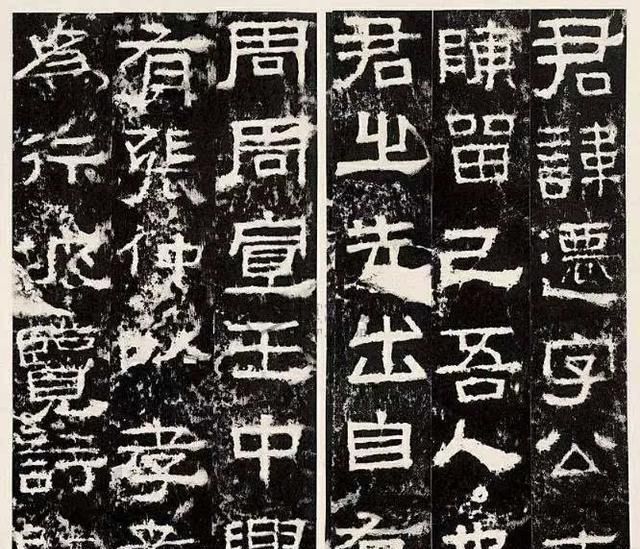 君諱遷字公
陳留己吾人也
君之先出自有
周周宣王中興
有張仲以孝友
為行披覽詩